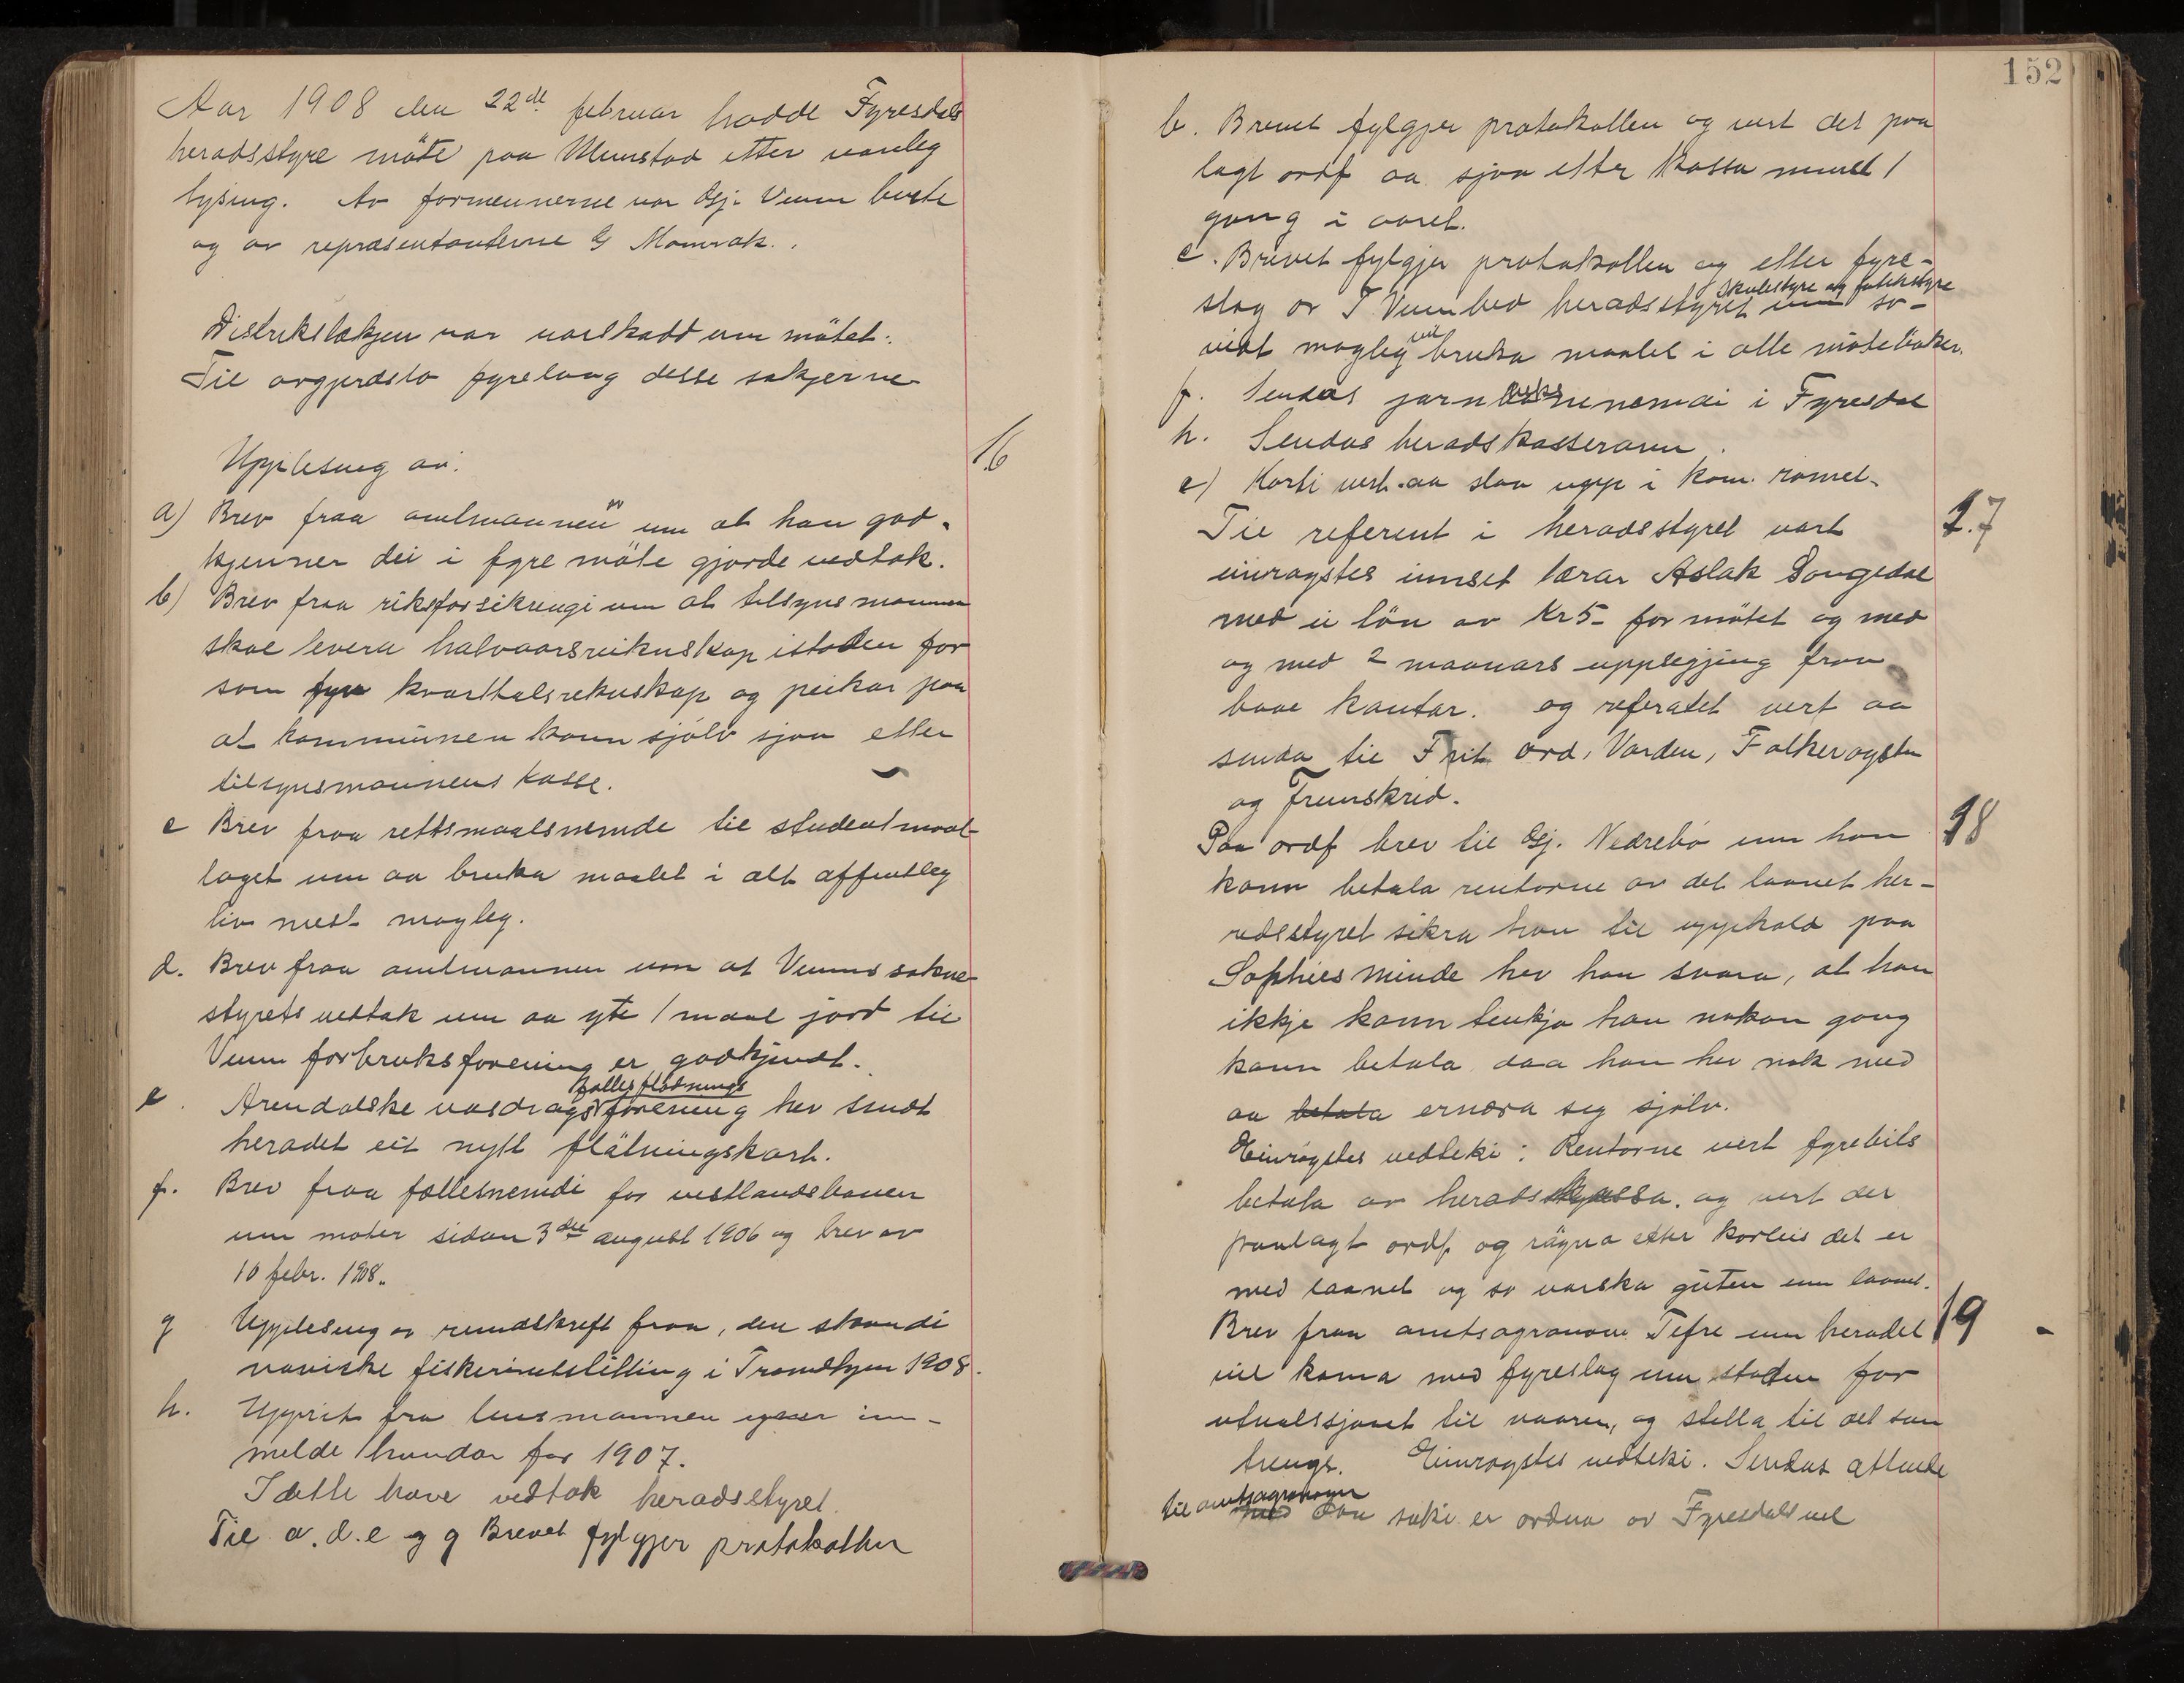 Aar 1908 den 22de februar hadde Fyresdals
heradsstyre möte paa Munstad etter vanleg
lysing. Av formennerne var Gj. Veum burte
og av repræsentanterne G Momrak.
Distrikslækjen var varskadd um mötet.
Til avgjerdsla fyrelaag desse sakjerne
16
Upplesing av:
a) Brev fraa amtmannen um at han god-
kjenner dei i fyre möte gjorde vedtak.
b) Brev fraa riksforsikringi um at tilsynsmannen
skal levera halvaarsreikneskap istaden for
som fyr kvartalsrekneskap og peikar paa
at kommunen kann sjölv sjaa etter
tilsynsmannens kasse.
c Brev fraa rettsmaalsnemde til studentmaal-
laget um aa bruka maalet i alt offentleg
liv mest mogleg.
d. Brev fraa amtmannen um at Veums sokne-
styrets vedtak um aa yte 1 maal jord til
Veum forbruksforening er godkjendt.
e. Arendalske vasdrags fællesflödnings forening hev sendt
heradet eit nytt flötningskart.
f. Brev fraa fællesnemdi for vestlandsbanen
um möter sidan 3die august 1906 og brev av
10 febr. 1908.
g Upplesing av rundskrift fraa, den skandi
naviske fiskeriutstilling i Trondhjem 1908.
h. Upprit fra lensmannen yver inn-
melde hundar for 1907.
I dette have vedtok heradsstyret.
Til a. d. e og g Brevet fylgjer protokollen
152
b. Brevet fylgjer protokollen og vert det paa
lagt ordf aa sjaa etter kassa minst 1
gong i aaret.
c. Brevet fylgjer protokollen og etter fyre-
slag av T Veum bed heradsstyret um skulestyre og fatikstyre so-
vidt mogleg vil bruka maalet i alle möteböker.
f. Sendas jarnvegsnemdi i Fyresdal
h. Sendas heradskasseraren.
e) Karti vert aa slaa upp i kom. romet.
17
Til referent i heradsstyret vart
einröystes innset lærar Aslak Songedal
med ei lön av Kr 5- for mötet og med
og med 2 maanars uppsegjing fraa
baae kantar. og referatet vert aa
senda til Frit ord, Varden, Folkeröysta
og Framskrid.
18
Paa ordf brev til Gj. Nedrebö um han
kann betala rentorne av det laanet her-
redsstyret sikra han til upphald paa
Sophies minde hev han svara, at han
ikkje kann tenkja han nokon gong
kann betala daa han hev nok med
aa betala ernæra seg sjölv.
Einröystes vedteki: Rentorne vert fyrebils
betala av heradskassa. og vert det
paalagt ordf og rägna etter korleis det er
med laanet og so varska guten um laanet.
19
Brev fraa amtsagronom Tefre um heradet
vil koma med fyreslag um staden for
utvalssjaaet til vaaren, og stella til det som
trengs. Einröystes vedteki. Sendas attende
til amtsagronomen med daa saki er ordna av Fyresdals vel